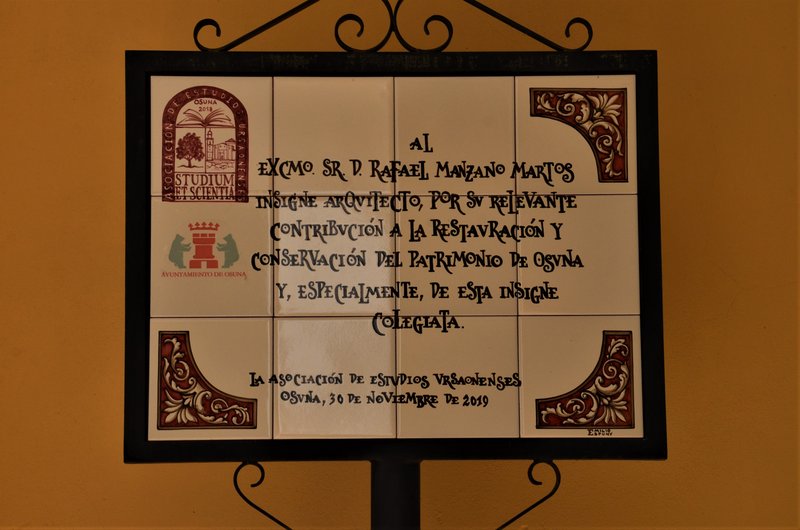 ASOCIACIÓN DE ESTUDIOS URSAONENSES
OSUNA
2018
STUDIUM
ET SCIENTIA
AYUNTAMIENTO DE OSUNA
AL
EXCMO. SR. D. RAFAEL MANZANO MARTOS
INSIGNE ARQVITECTO, POR SV RELEVANTE
CONTRIBVCIÓN A LA RESTAVRACIÓN Y
CONSERVACIÓN DEL PATRIMONIO DE OSVNA
Y, ESPECIALMENTE, DE ESTA INSIGNE
COLEGIATA.
LA ASOCIACIÓN DE ESTVDIOS VRSAONENSES
OSVNA, 30 DE NOVIEMBRE DE 2019